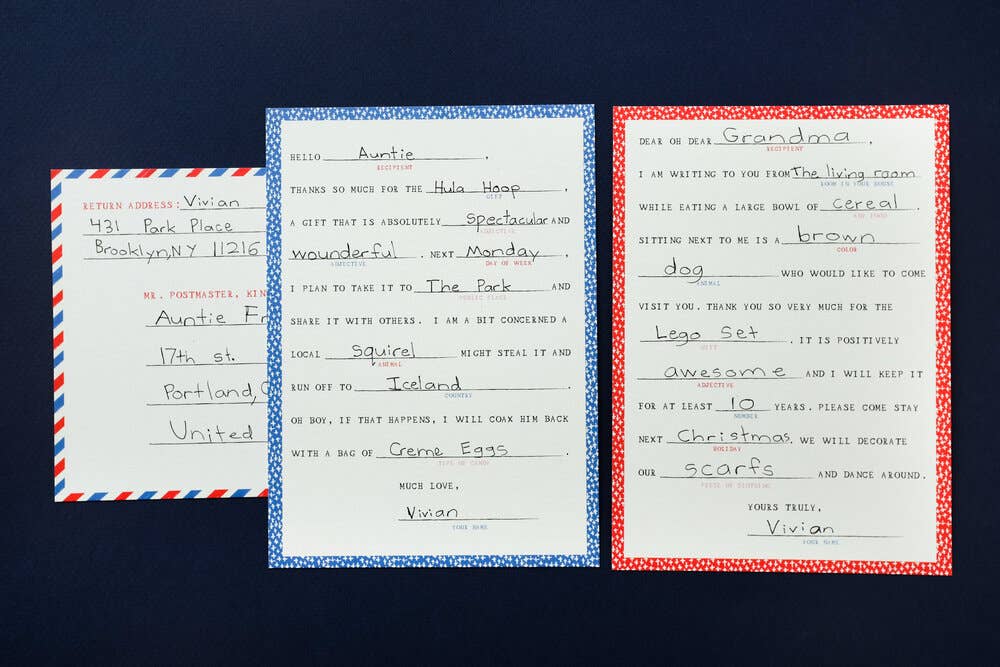 RETURN ADDRESS: Vivian
431 Park Place
Brooklyn, NY 11216
MR. POSTMASTER, KIN
Auntie Fr
17th st.
Portland,
United
HELLO Auntie,
RECIPIENT
THANKS SO MUCH FOR THE Hula Hoop,
GIFT
A GIFT THAT IS ABSOLUTELY spectacular AND
ADJECTIVE
wounderful. NEXT Monday,
ADJECTIVE DAY OF WEEK
I PLAN TO TAKE IT TO The Park AND
PUBLIC PLACE
SHARE IT WITH OTHERS. I AM A BIT CONCERNED A
LOCAL squirel MIGHT STEAL IT AND
ANIMAL
RUN OFF TO Iceland.
COUNTRY
OH BOY, IF THAT HAPPENS, I WILL COAX HIM BACK
WITH A BAG OF Creme Eggs.
TYPE OF CANDY
MUCH LOVE,
Vivian
YOUR NAME
DEAR OH DEAR Grandma,
RECIPIENT
I AM WRITING TO YOU FROM The living room
ROOM IN YOUR HOUSE
WHILE EATING A LARGE BOWL OF cereal.
SITTING NEXT TO ME IS A brown
COLOR
dog WHO WOULD LIKE TO COME
ANIMAL
VISIT YOU. THANK YOU SO VERY MUCH FOR THE
Lego Set. IT IS POSITIVELY
GIFT
awesome AND I WILL KEEP IT
ADJECTIVE
FOR AT LEAST 10 YEARS. PLEASE COME STAY
NUMBER
NEXT Christmas. WE WILL DECORATE
HOLIDAY
OUR scarfs AND DANCE AROUND.
PIECE OF CLOTHING
YOURS TRULY,
Vivian
YOUR NAME